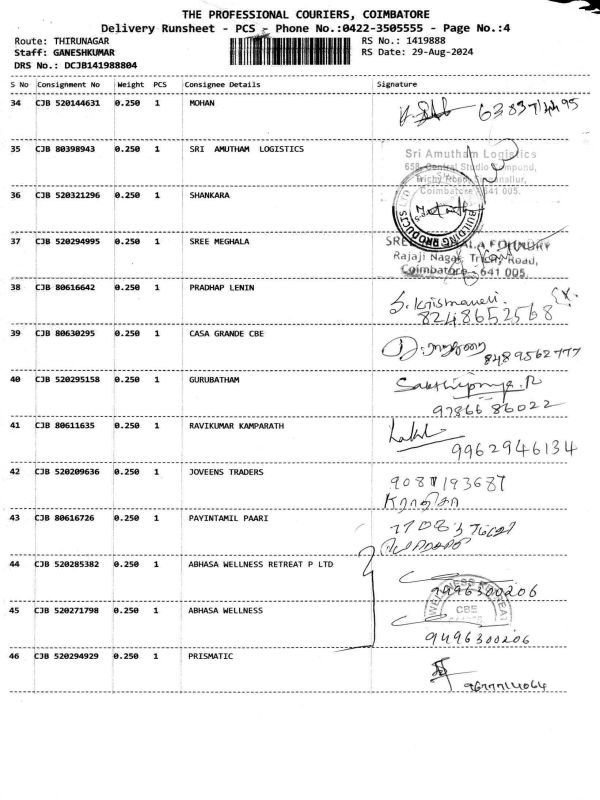 THE PROFESSIONAL COURIERS, COIMBATORE
Delivery Runsheet - PCS - Phone No.:0422-3505555 - Page No.:4
Route: THIRUNAGAR RS No.: 1419888
Staff: GANESHKUMAR RS Date: 29-Aug-2024
DRS No.: DCJB141988804
S No Consignment No Weight PCS Consignee Details Signature
34 CJB 520144631 0.250 1 MOHAN
35 CJB 80398943 0.250 1 SRI AMUTHAM LOGISTICS
Sri Amutham Logistics
Coimbatore 641 005.
36 CJB 520321296 0.250 1 SHANKARA
BUILDING PRODUCTS
37 CJB 520294995 0.250 1 SREE MEGHALA
FOUNDRY
Rajaji Nagar, Trichy Road,
Coimbatore - 641 005.
38 CJB 80616642 0.250 1 PRADHAP LENIN
8248652568
39 CJB 80630295 0.250 1 CASA GRANDE CBE
8489562777
40 CJB 520295158 0.250 1 GURUBATHAM
97866 86022
41 CJB 80611635 0.250 1 RAVIKUMAR KAMPARATH
9962946134
42 CJB 520209636 0.250 1 JOVEENS TRADERS
43 CJB 80616726 0.250 1 PAYINTAMIL PAARI
44 CJB 520285382 0.250 1 ABHASA WELLNESS RETREAT P LTD
9496300206
WELLNESS RETREAT
CBE
45 CJB 520271798 0.250 1 ABHASA WELLNESS
9496300206
46 CJB 520294929 0.250 1 PRISMATIC